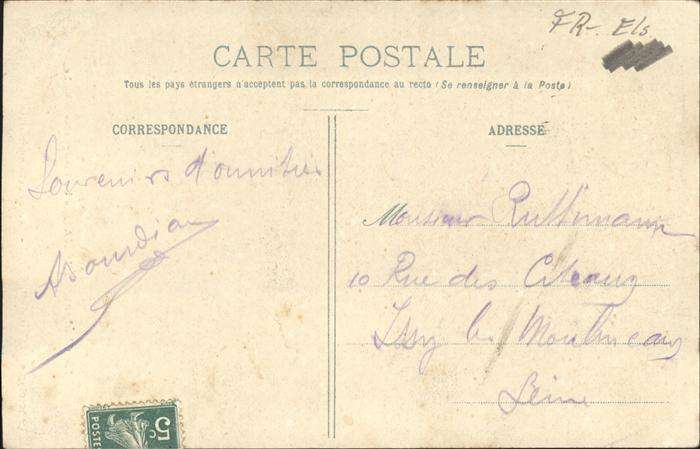 FR- Els
CARTE POSTALE
Tous les pays étrangers n'acceptent pas la correspondance au recto (Se renseigner à la Poste)
CORRESPONDANCE
ADRESSE
Souvenirs d'amitiés
Monsieur Ruttimann
10 Rue des
Issy les Moulineaux
Seine
5c
POSTES